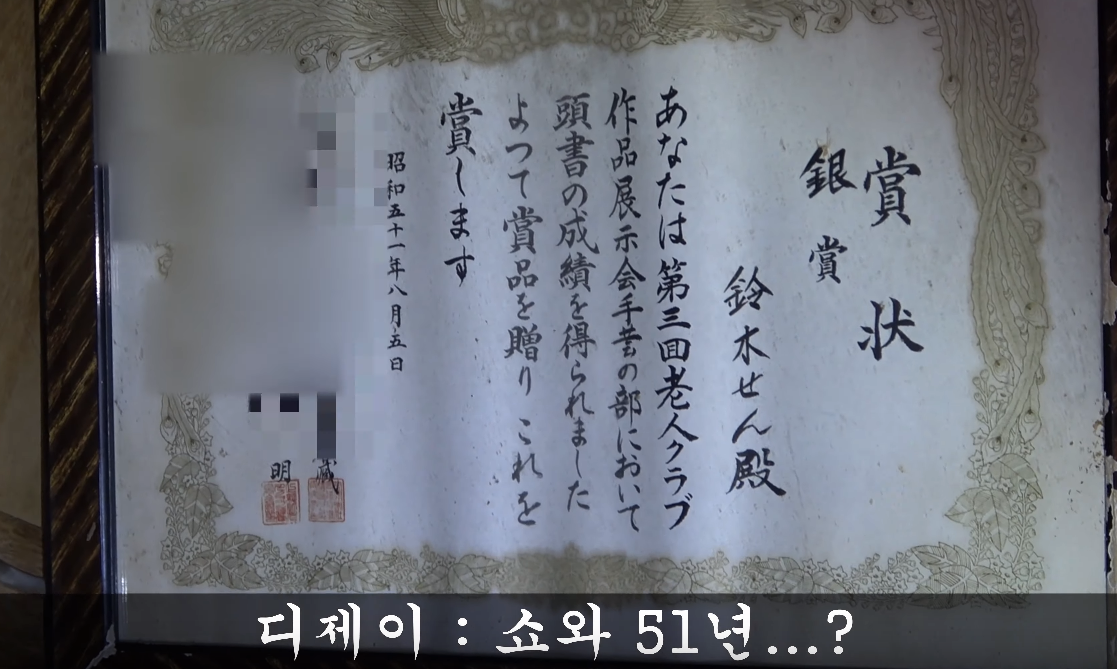 賞状
銀賞
鈴木せん殿
あなたは第三回老人クラブ
作品展示会手芸の部において
頭書の成績を得られました
よつて賞品を贈りこれを
賞します
昭和五十一年八月五日
蔵
明
디제이 : 쇼와 51년...?